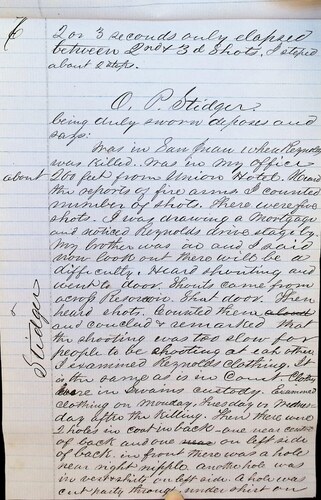 2 or 3 seconds only elapsed
between 2nd & 3d Shots. I steped
about 2 steps.
O. P. Stidger
being duly sworn deposes and
says:
Was in San Juan when Reynolds
was killed. Was in my office
about 260 feet from Union Hotel. Heard
the reports of fire arms. I counted
number of shots. There were five
shots. I was drawing a Mortgage
and noticed Reynolds drive stage by.
My brother was in and I said
now look out there will be a
difficulty. Heard shouting and
went to door. Shouts came from
across Reservoir. Shut door. Then
heard shots. Counted them aloud
and concluded & remarked that
the shooting was too slow for
people to be shooting at each other
I examined Reynolds clothing. It
is the same as is in Court. Clothing
were in custody. Examined
clothing on Monday, Tuesday or Wednes
day after the killing. Then there were
2 holes in coat in back - one near center
of back and one on left side
of back. in front there was a hole
near right nipple. Another hole was
in vest & shirt on left side. A hole was
cut partly through under shirt on
Stidger